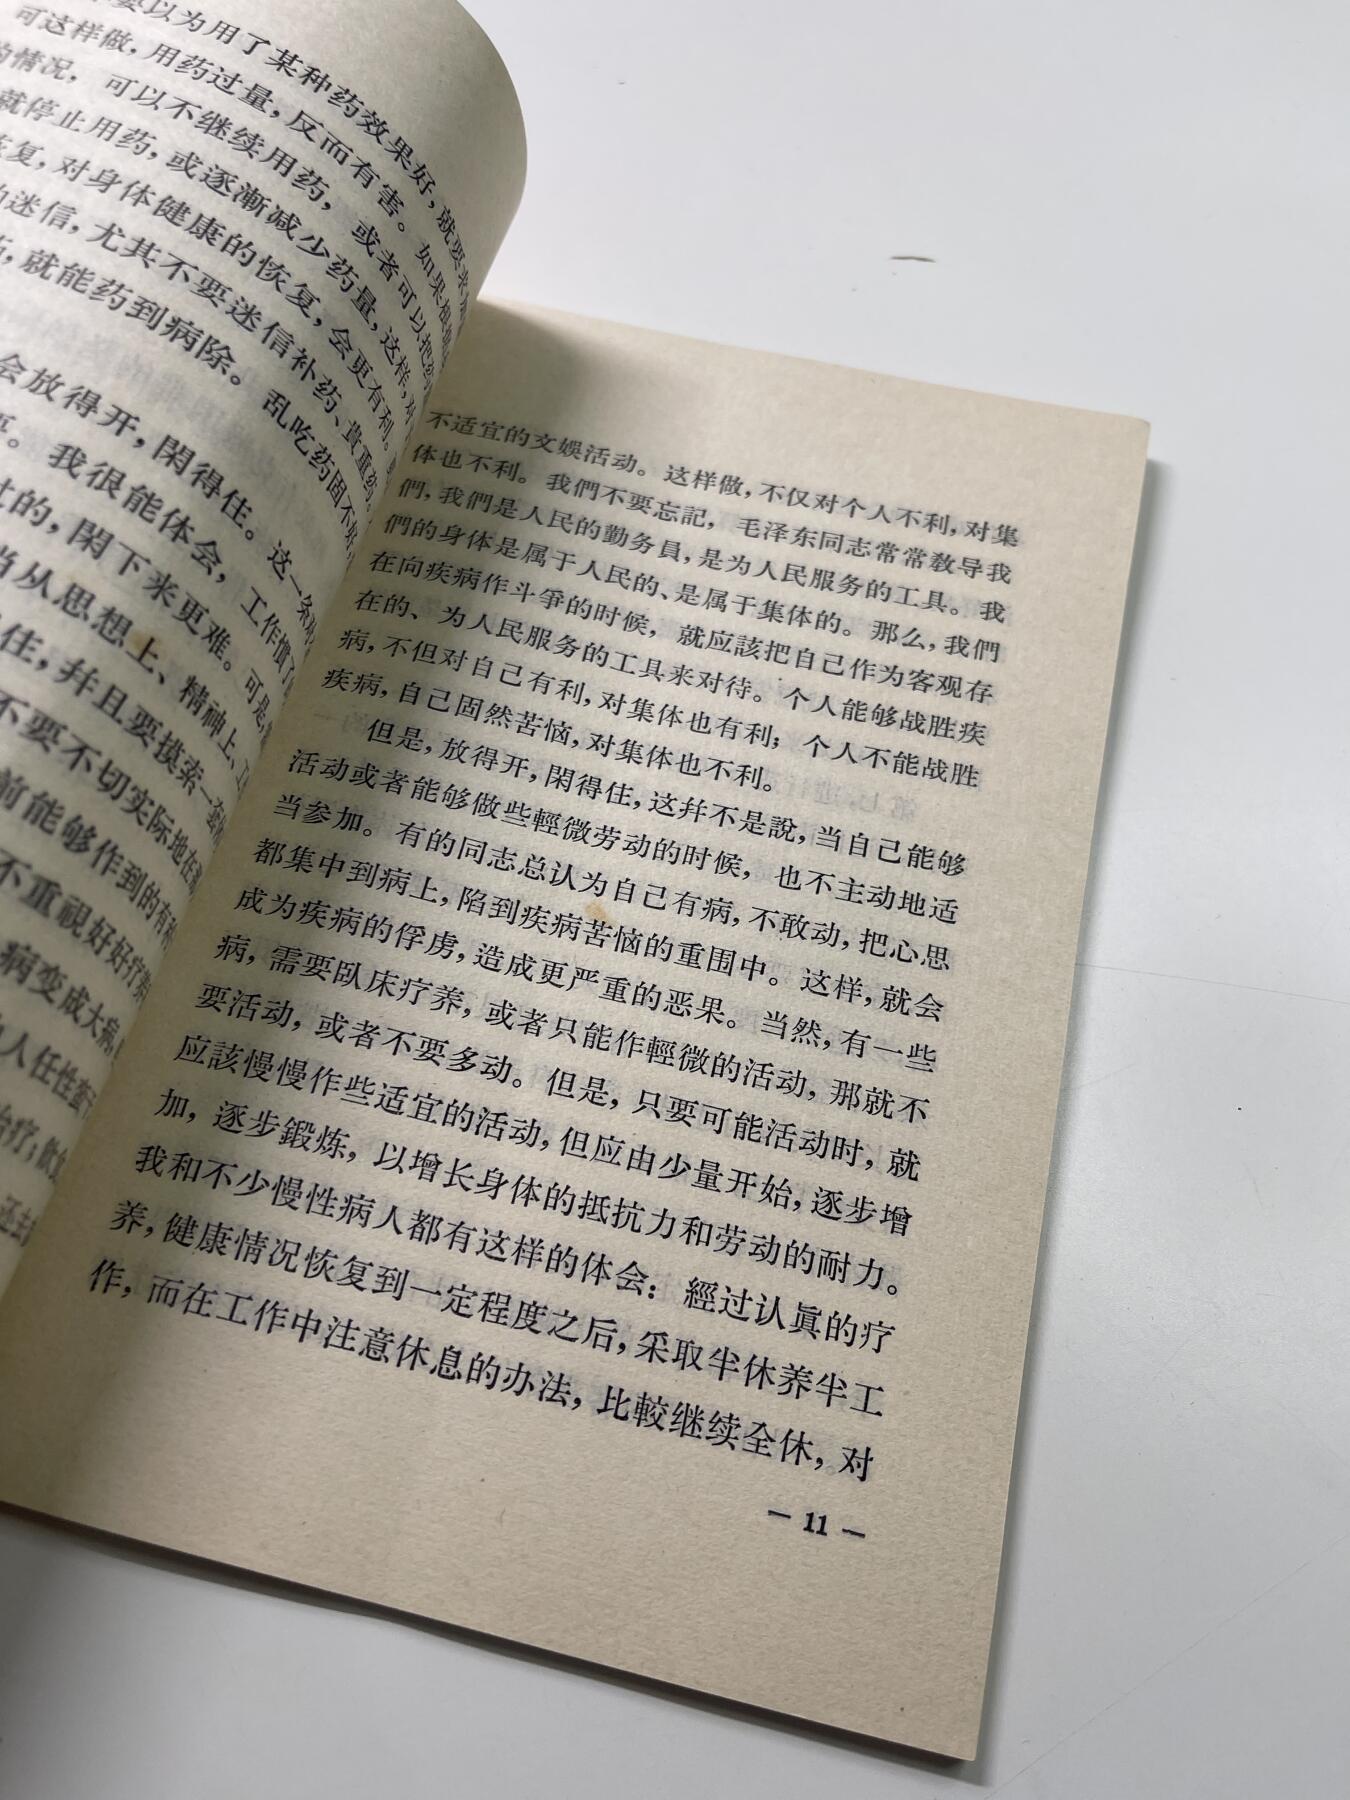 要以为用了某种药效果好，就要求
可这样做，用药过量，反而有害。如果根据
的情况，可以不继续用药，或者可以把药
就停止用药，或逐漸减少药量，这样，对
恢复，对身体健康的恢复，会更有利。
的迷信，尤其不要迷信补药、貴重药。
就能药到病除。乱吃药固不好，
会放得开，閑得住。这一条
我很能体会，工作慣了
过的，閑下来更难。可是，
当从思想上、精神上、工
住，幷且要摸索一套
不要不切实际地在
前能够作到的有
不重視好好疗养
病变成大病，
人任性蛮干
治疗；飲食
还去
不适宜的文娛活动。这样做，不仅对个人不利，对集
体也不利。我們不要忘記，毛泽东同志常常敎导我
們，我們是人民的勤务員，是为人民服务的工具。我
們的身体是属于人民的、是属于集体的。那么，我們
在向疾病作斗爭的时候，就应該把自己作为客观存
在的、为人民服务的工具来对待。个人能够战胜疾
病，不但对自己有利，对集体也有利；个人不能战胜
疾病，自己固然苦恼，对集体也不利。
但是，放得开，閑得住，这幷不是說，当自己能够
活动或者能够做些輕微劳动的时候，也不主动地适
当参加。有的同志总认为自己有病，不敢动，把心思
都集中到病上，陷到疾病苦恼的重围中。这样，就会
成为疾病的俘虏，造成更严重的恶果。当然，有一些
病，需要臥床疗养，或者只能作輕微的活动，那就不
要活动，或者不要多动。但是，只要可能活动时，就
应該慢慢作些适宜的活动，但应由少量开始，逐步增
加，逐步鍛炼，以增长身体的抵抗力和劳动的耐力。
我和不少慢性病人都有这样的体会：經过认眞的疗
养，健康情况恢复到一定程度之后，采取半休养半工
作，而在工作中注意休息的办法，比較继续全休，对
— 11 —